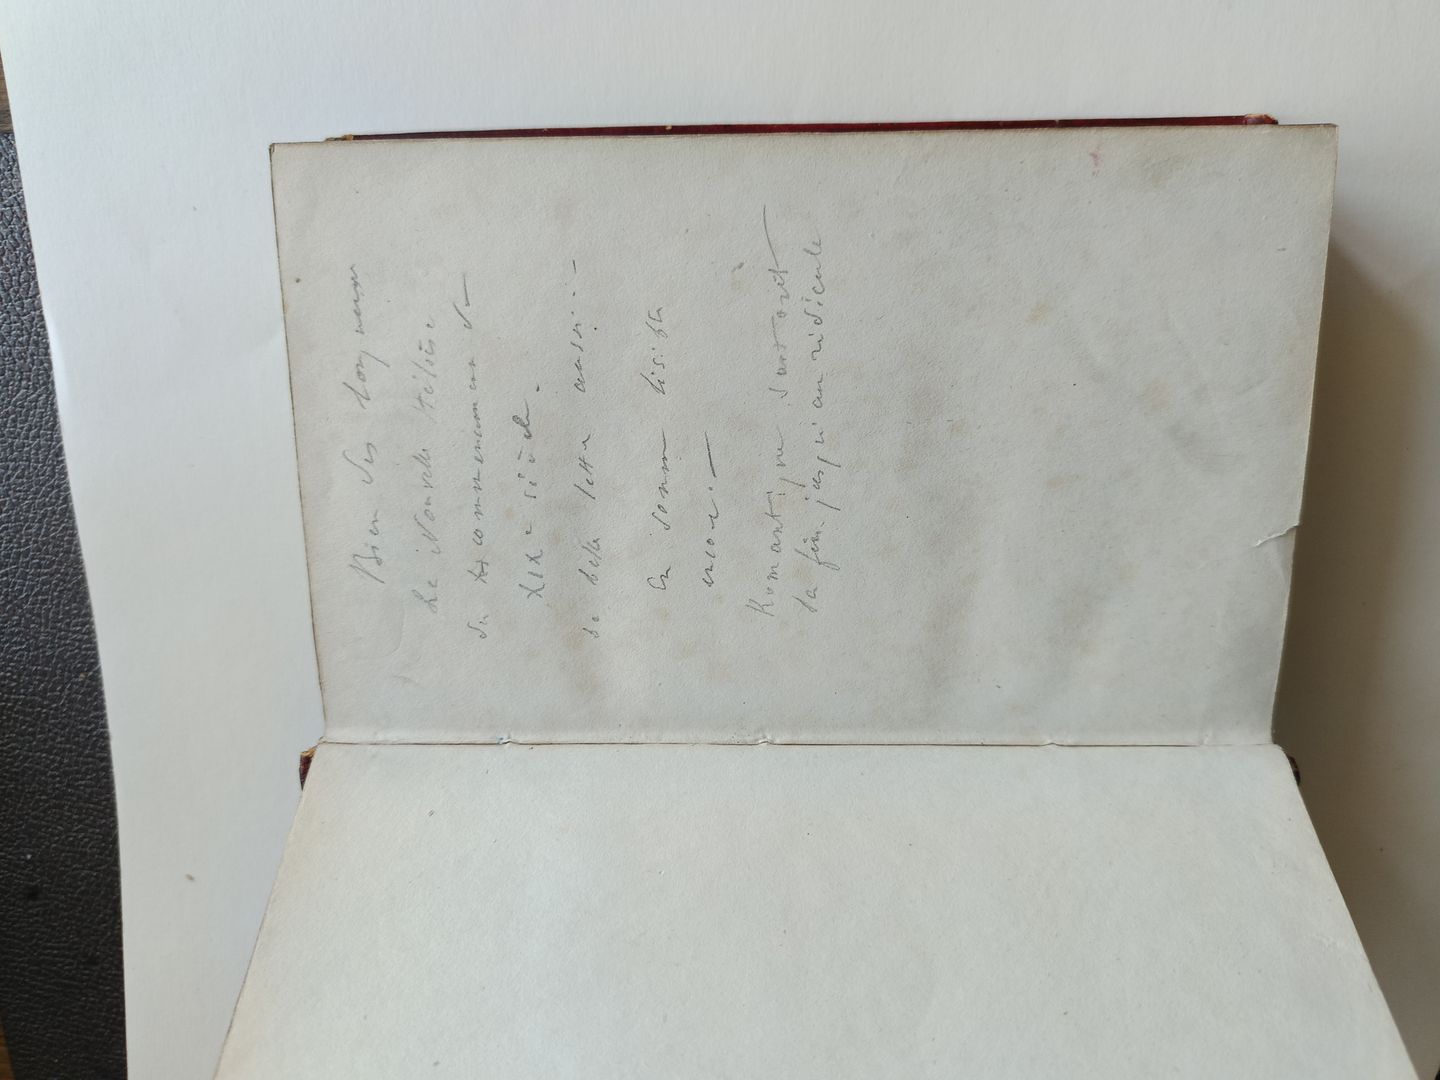 Bien des longueurs
La Nouvelle Héloïse
du commencement du
XIXe siècle.
de belles lettres aussi. –
En somme lisible
encore. –
Romantique surtout
sa fin jusqu'au ridicule